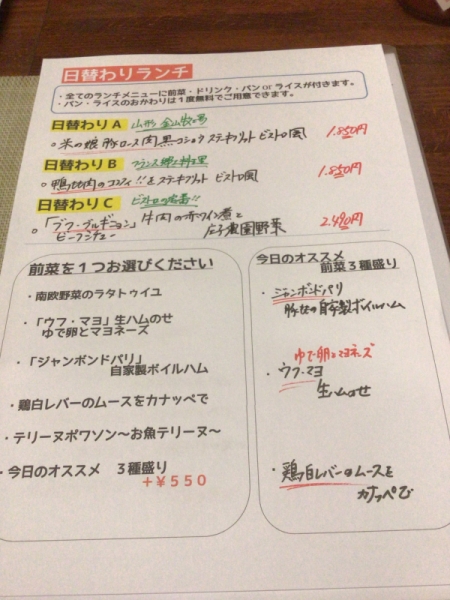 日替わりランチ
・全てのランチメニューに前菜・ドリンク・パン or ライスが付きます。
・パン・ライスのおかわりは１度無料でご用意できます。
日替わり A 山形 金山
。米の娘豚ロース肉 黒コショウ ステキフリット ビストロ風 1.850円
日替わり B フランス郷土料理
。鴨モモ肉のコンフィ!! をステキフリット ビストロ風 1.850円
日替わり C ビストロの定番!!
。「ブフ・ブルギニョン」 牛肉の赤ワイン煮と 2.490円
ビーフシチュー 庄子農園野菜
前菜を１つお選びください
・南欧野菜のラタトゥイユ
・「ウフ・マヨ」生ハムのせ
ゆで卵とマヨネーズ
・「ジャンボンドパリ」
自家製ボイルハム
・鶏白レバーのムースをカナッペで
・テリーヌポワソン〜お魚テリーヌ〜
・今日のオススメ ３種盛り
＋￥５５０
今日のオススメ
前菜３種盛り
・ジャンボンドパリ
豚モモの自家製ボイルハム
ゆで卵とマヨネーズ
・ウフ・マヨ
生ハムのせ
・鶏白レバーのムースを
カナッペで